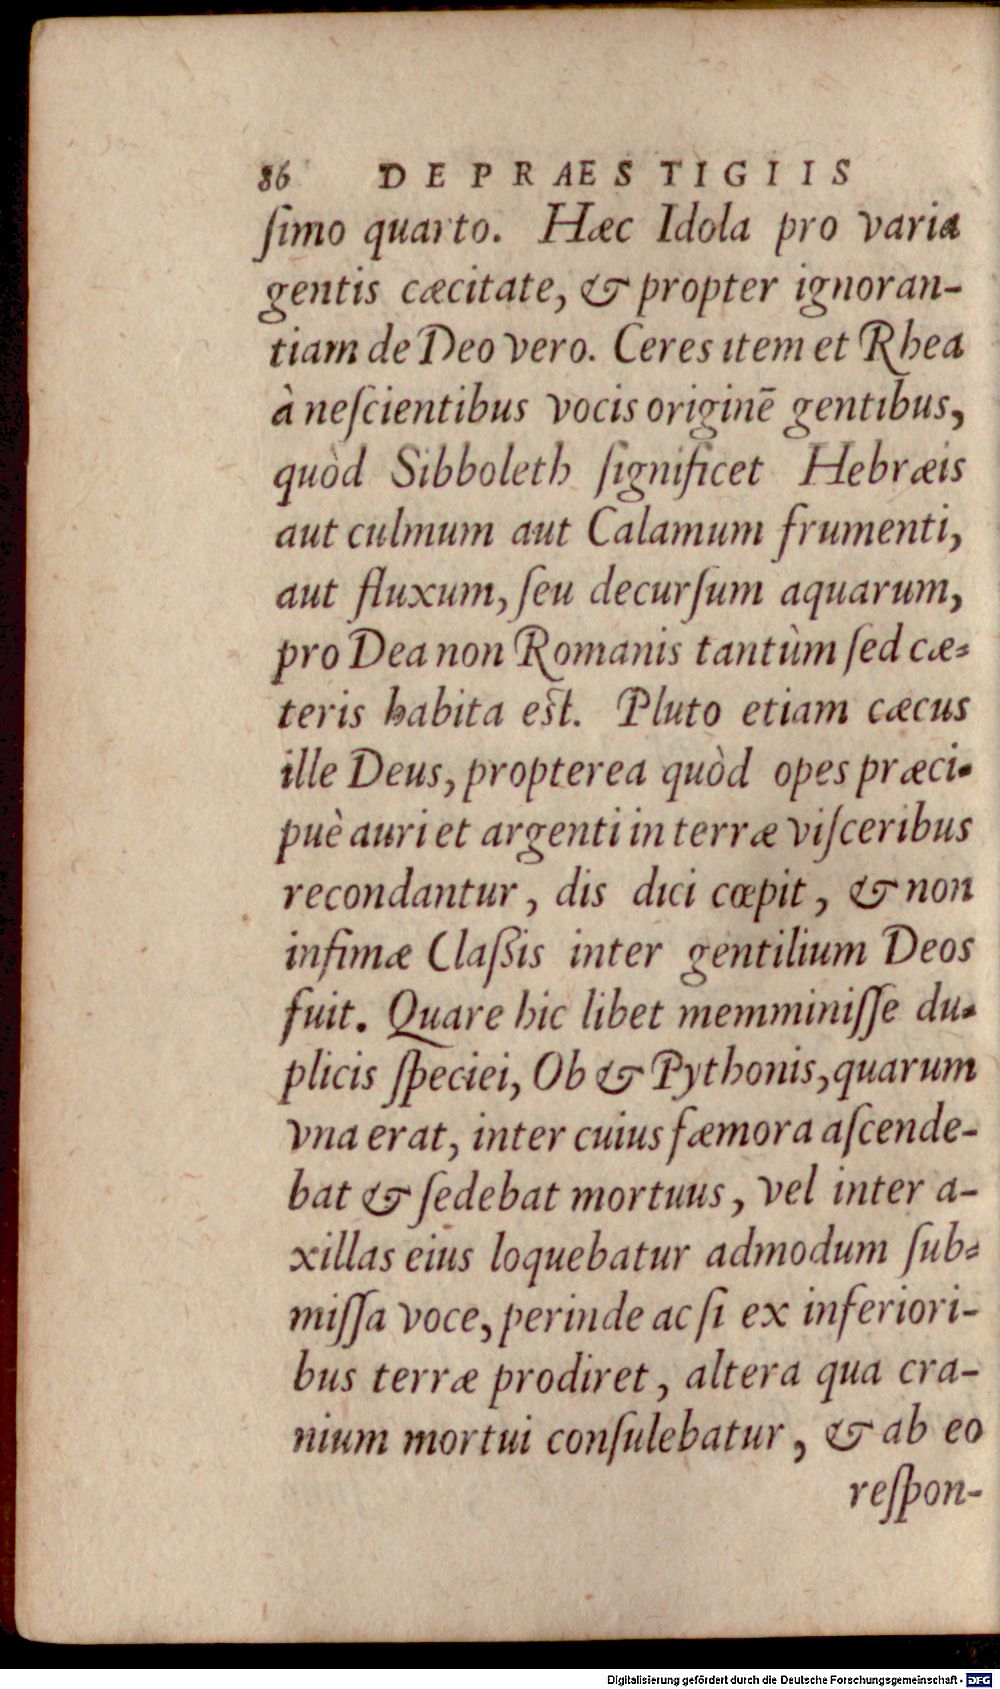 86 DE PRAESTIGIIS
ſimo quarto. Hæc Idola pro varia
gentis cæcitate, & propter ignoran-
tiam de Deo vero. Ceres item et Rhea
à neſcientibus vocis originē gentibus,
quòd Sibboleth ſignificet Hebræis
aut culmum aut Calamum frumenti,
aut fluxum, ſeu decurſum aquarum,
pro Dea non Romanis tantùm ſed cæ-
teris habita eſt. Pluto etiam cæcus
ille Deus, propterea quòd opes præci-
puè auri et argenti in terræ viſceribus
recondantur, dis dici cœpit, & non
infimæ Claſsis inter gentilium Deos
fuit. Quare hic libet memminiſſe du-
plicis ſpeciei, Ob & Pythonis, quarum
vna erat, inter cuius fæmora aſcende-
bat & ſedebat mortuus, vel inter a-
xillas eius loquebatur admodum ſub-
miſſa voce, perinde ac ſi ex inferiori-
bus terræ prodiret, altera qua cra-
nium mortui conſulebatur, & ab eo
reſpon-
Digitalisierung gefördert durch die Deutsche Forschungsgemeinschaft - DFG